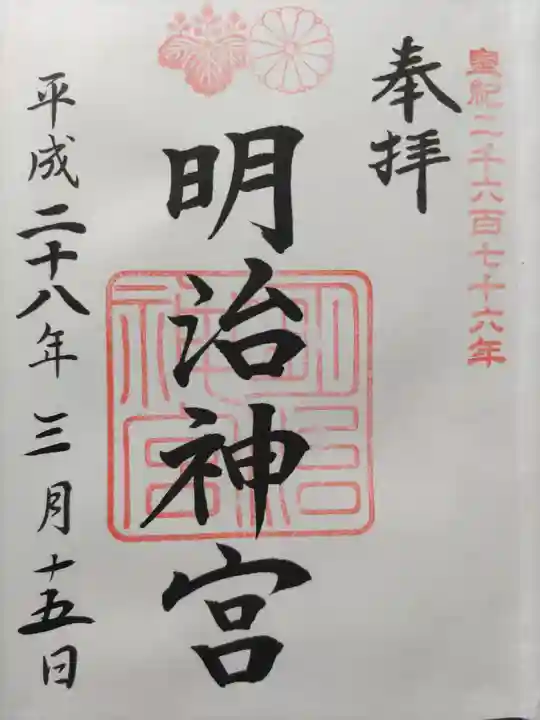 皇紀二千六百七十六年
奉拝
明治神宮
明治神宮
平成二十八年三月十五日